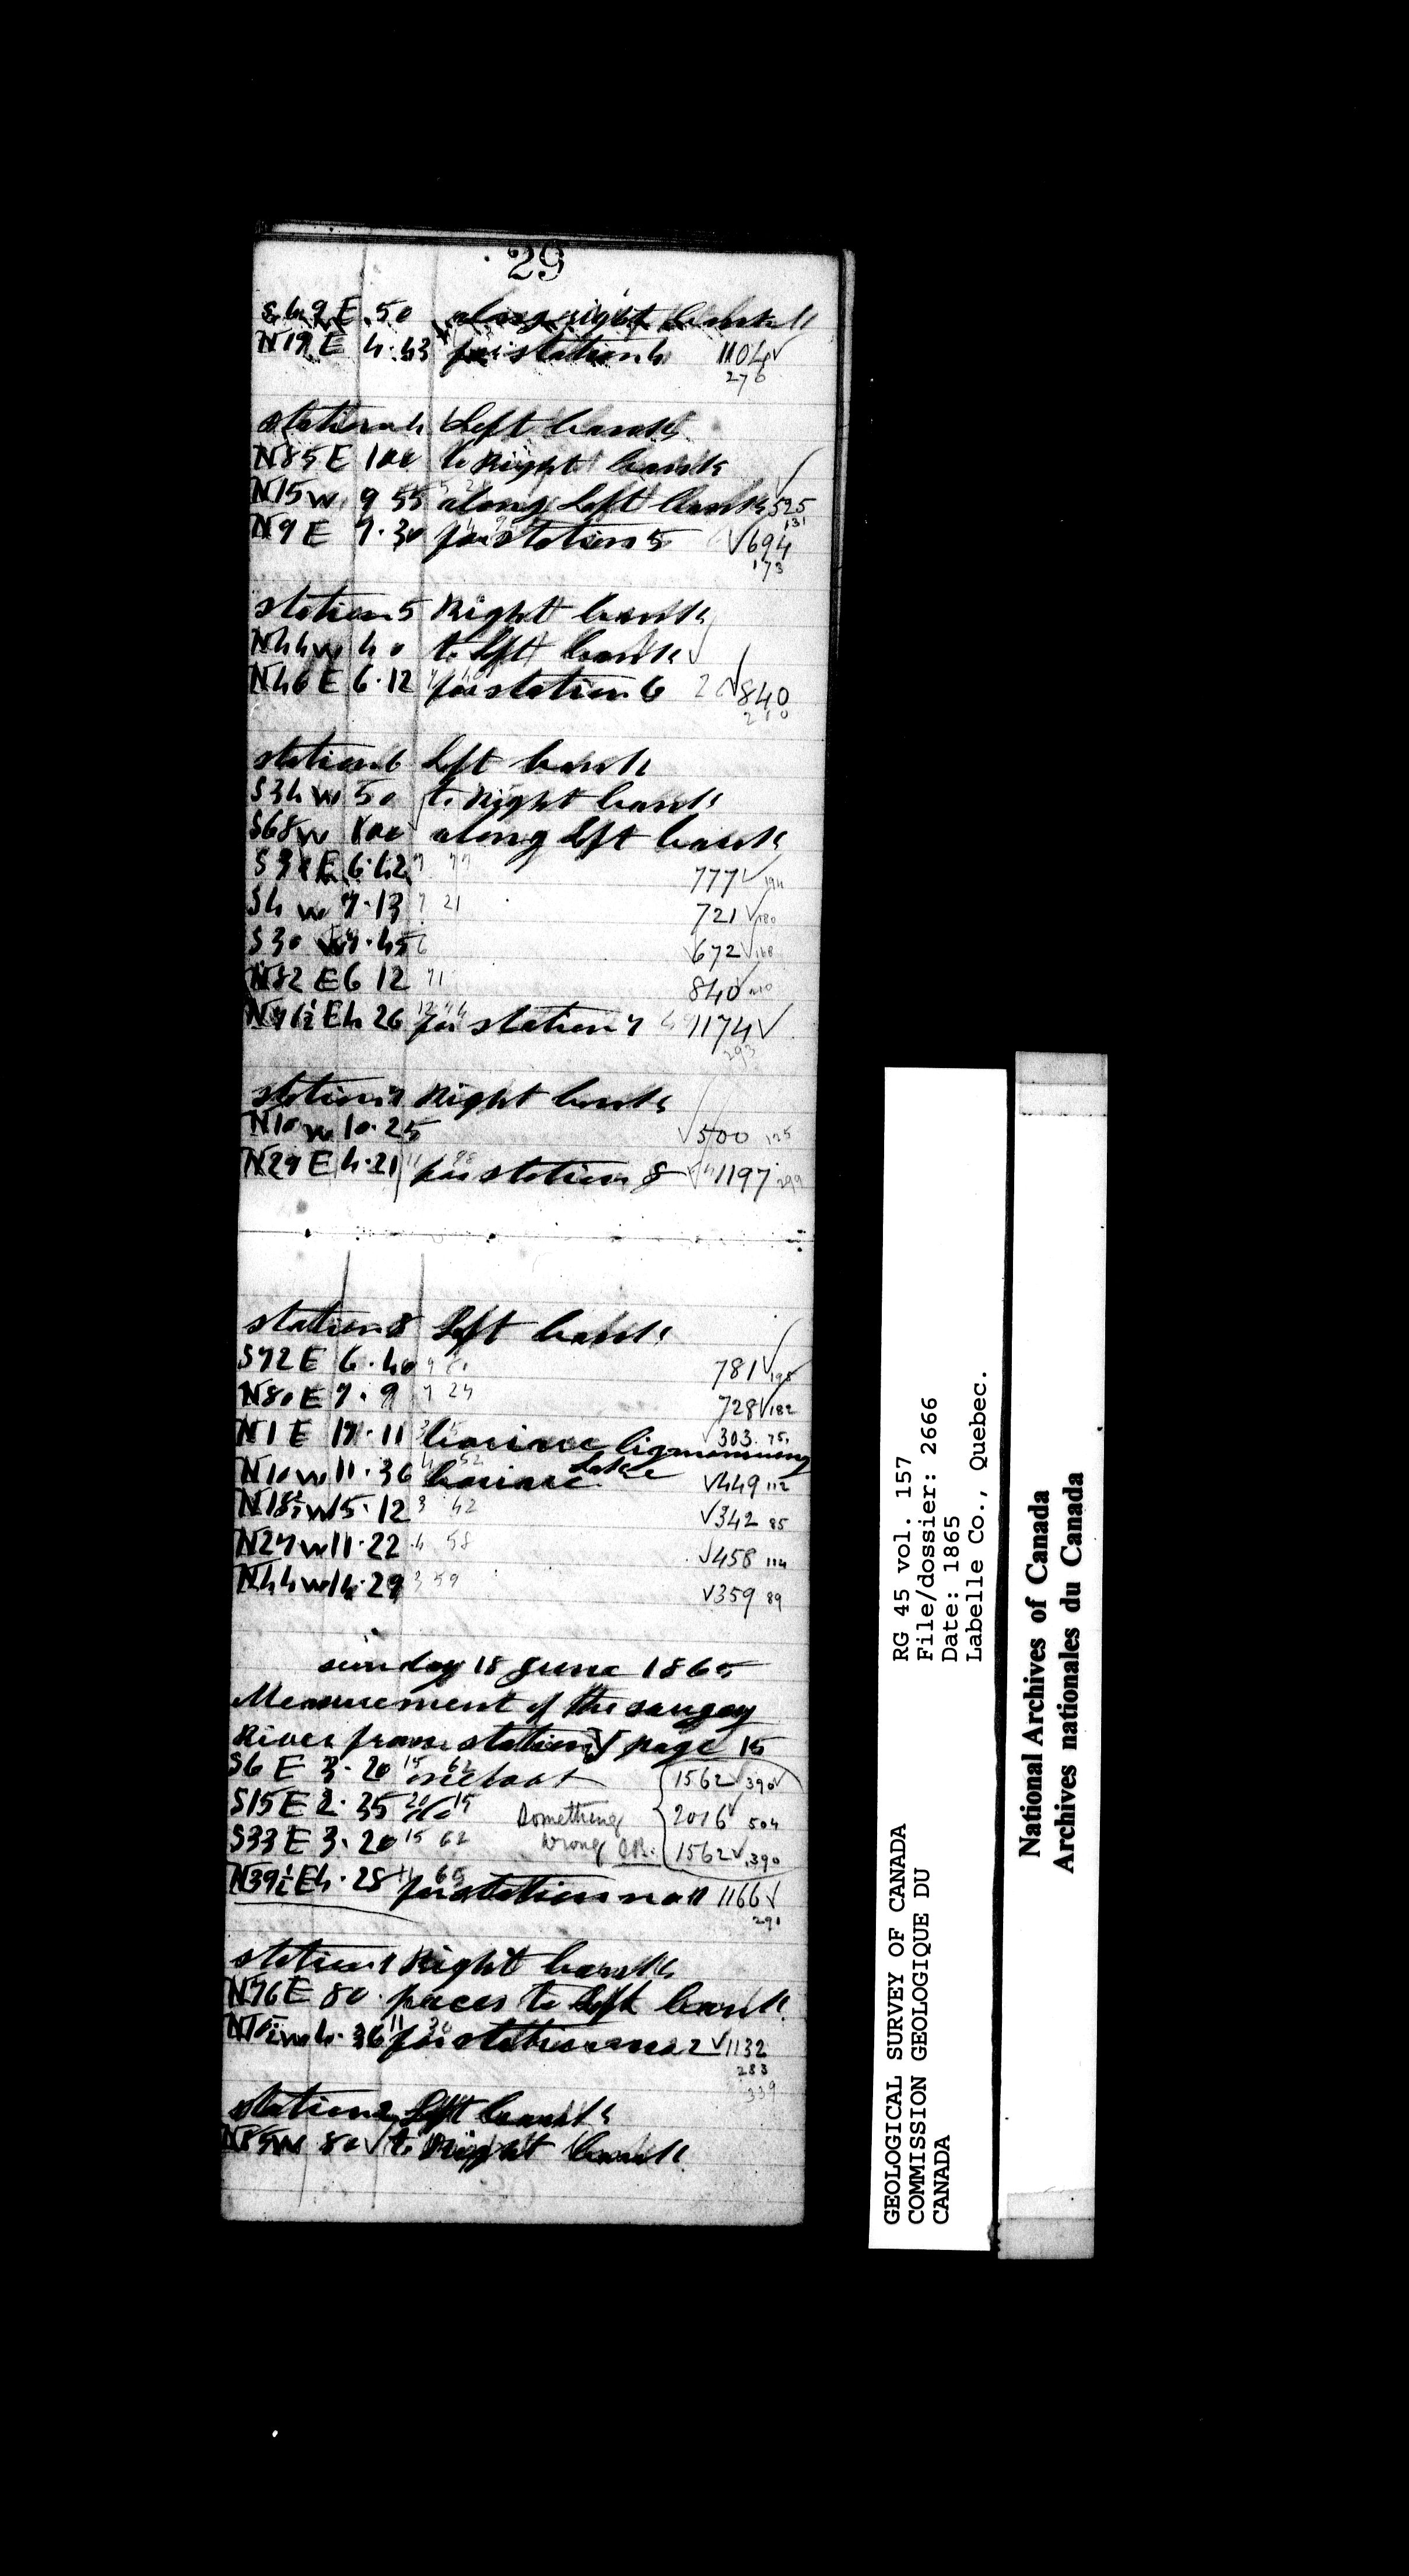 29
S 69 E 50 along right bank
N19 E 4.43 for station 4 1104 ✓
276
station 4 Left bank
N85 E 100 to Right bank
N15 w 9 55 along Left bank 525
131
N9 E 7.30 for station 5 ✓694
173
station 5 Right bank
N44w 40 to left bank
N46 E 6.12 for station 6 ✓840
210
station 6 Left bank
S34 w 50 to Right bank
S68w 100 along left bank
E 6.42 7 77 777 ✓ 194
S4 w 7.13 7 21 721 ✓ 180
S30 w 7.45 6 ✓672 ✓ 168
N82 E 6 12 840 210
N76½ E 4 26 for station 7 1174 ✓
293
station 7 Right bank
N10 w 10.25 ✓500 125
N29 E 4.21 for station 8 1197 299
station 8 Left bank
S72 E 6.40 781 ✓ 195
N80 E 7.9 7 28 728 ✓ 182
N1 E 17.11 ✓303 75
Lake
N10 w 11.36 ✓449 112
N18½ w 15.12 3 42 ✓342 85
N27 w 11.22 4 58 ✓458 114
N44 w 14.29 3 59 ✓359 89
sunday 18 June 1865
Measurement of the saugay
River from station page 15
S6 E 3.20 15 62 1562 ✓ 390
S15 E 2.35 20 15 Do Something 2016 ✓ 504
S33 E 3.20 15 62 wrong 1562 ✓ 390
N39½ E 4.28 for station no 1 1166 ✓
291
station 1 Right bank
N76 E 80 paces to left bank
w 4.36 for station no 2 ✓1132
283
339
station 2 Left bank
N85w 80 ✓ to Right bank
GEOLOGICAL SURVEY OF CANADA RG 45 vol. 157
COMMISSION GEOLOGIQUE DU File/dossier: 2666
CANADA Date: 1865
Labelle Co., Quebec.
National Archives of Canada
Archives nationales du Canada